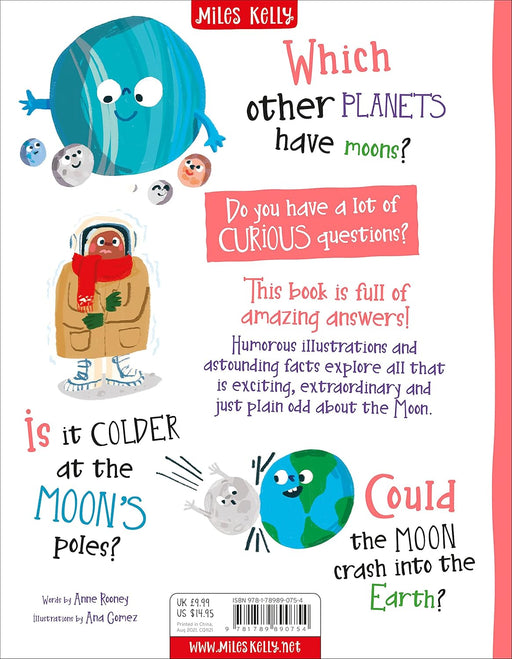 Miles Kelly
Which
other PLANETS
have moons?
Do you have a lot of
CURIOUS questions?
This book is full of
amazing answers!
Humorous illustrations and
astounding facts explore all that
is exciting, extraordinary and
just plain odd about the Moon.
Is it COLDER
at the
MOON'S
poles?
Could
the MOON
crash into the
Earth?
Words by Anne Rooney
Illustrations by Ana Gomez
UK £9.99
US $14.95
Printed in China,
Aug 2021, CG1521
ISBN 978-1-78989-075-4
9 781789 890754
www.MilesKelly.net